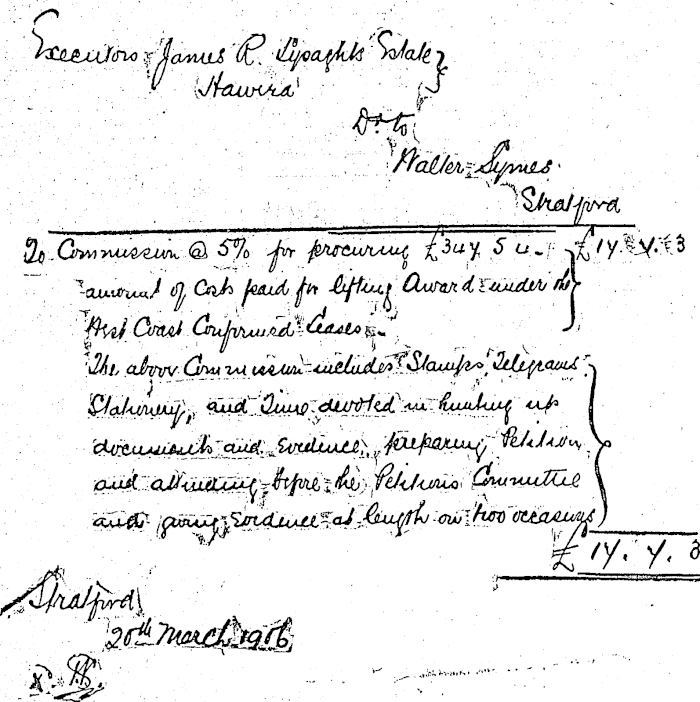 Executors James R. Lysaghts Estate
Hawera
Dr to
Walter Symes.
Stratford
To Commission @ 5% for procuring £347. 5 4. £17. 7. 3
amount of Costs paid for lifting Award under the
West Coast Confirmed Leases.
The above Commission includes Stamps, Telegrams
Stationery, and Time devoted in hunting up
documents and Evidence, preparing Petition
and attending before the Petitions Committee
and giving Evidence at length on two occasions
£ 17. 7. 3
Stratford
20th March 1906